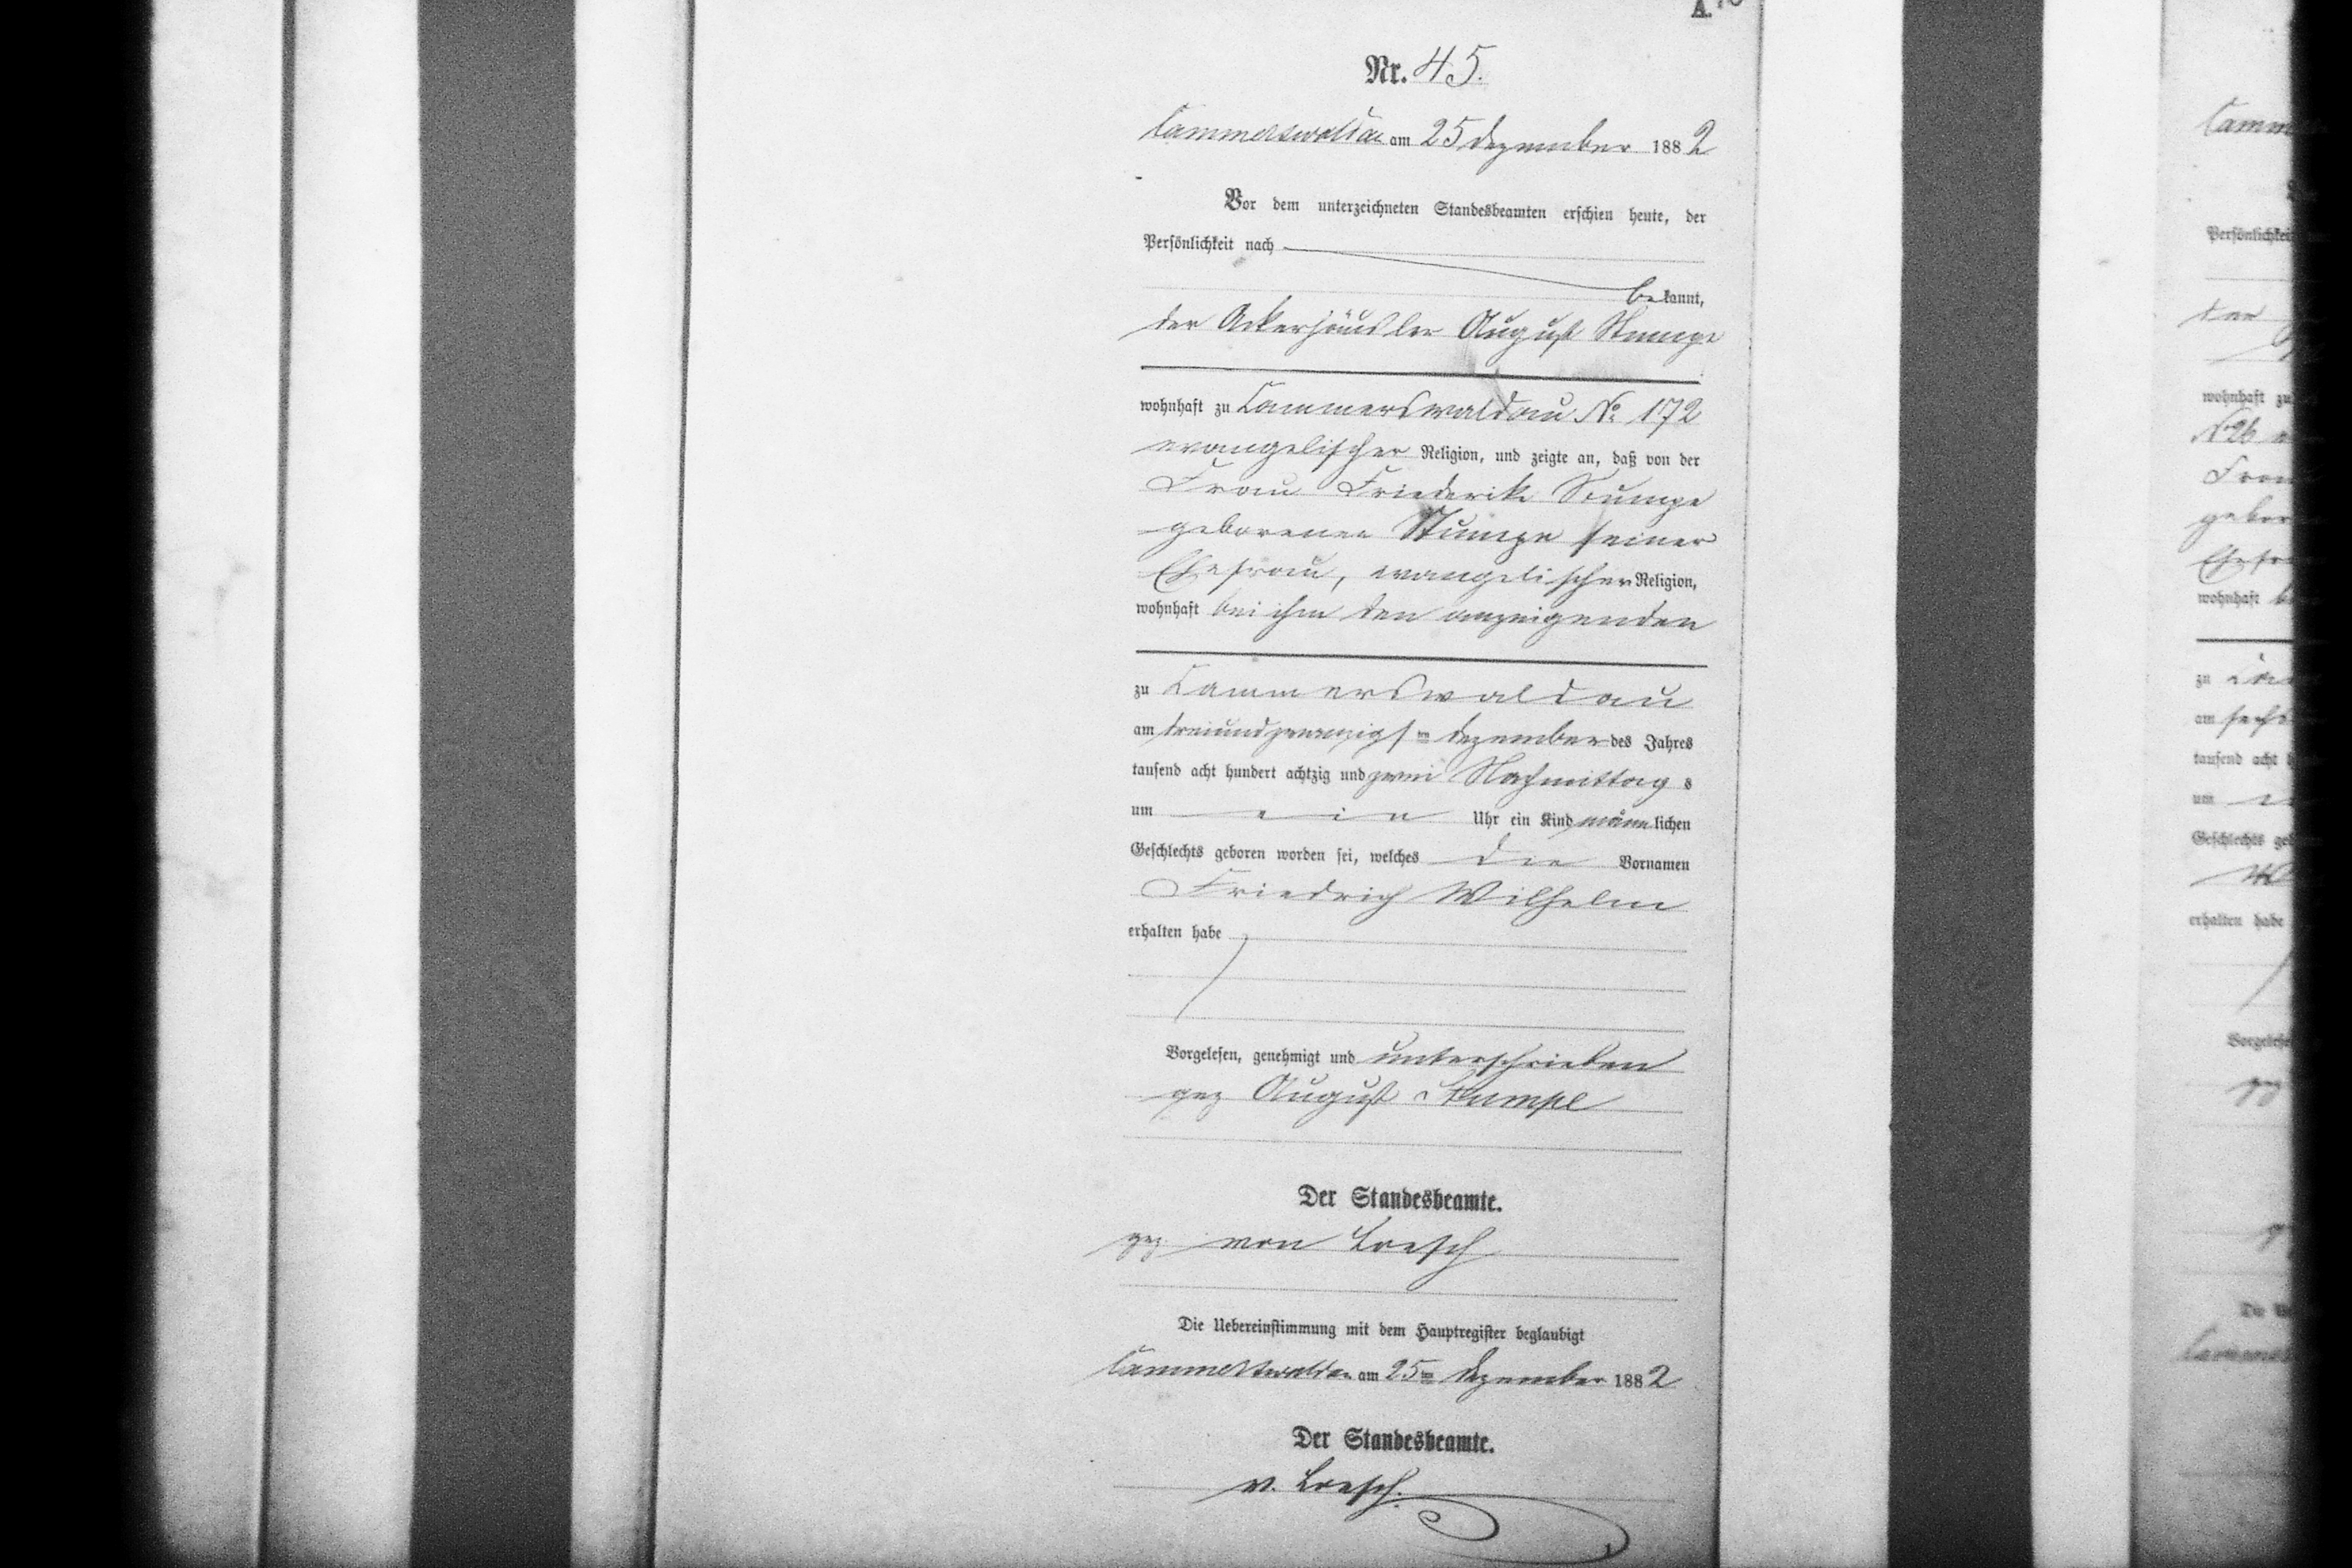 A.
Nr. 45.
Cammerswaldau am 25 Dezember 1882
Vor dem unterzeichneten Standesbeamten erschien heute, der
Persönlichkeit nach
bekannt,
der Ackerhäusler August Stumpe
wohnhaft zu Cammerswaldau No 172
evangelischer Religion, und zeigte an, daß von der
Frau Friederike Stumpe
geborenen Stumpe seiner
Ehefrau, evangelischer Religion,
wohnhaft bei ihm den anzeigenden
zu Cammerswaldau
am dreiundzwanzigsten Dezember des Jahres
tausend acht hundert achtzig und zwei Nachmittags
um ein Uhr ein Kind männlichen
Geschlechts geboren worden sei, welches die Vornamen
Friedrich Wilhelm
erhalten habe
Vorgelesen, genehmigt und unterschrieben
gez August Stumpe
Der Standesbeamte.
gez von Loesch
Die Uebereinstimmung mit dem Hauptregister beglaubigt
Cammerswaldau am 25ten Dezember 1882
Der Standesbeamte.
v. Loesch.
Persönlichkei
wohnhaft zu
No 26
Frau
wohnhaft
zu
am
tausend acht
um
Geschlechts
erhalten habe
gez